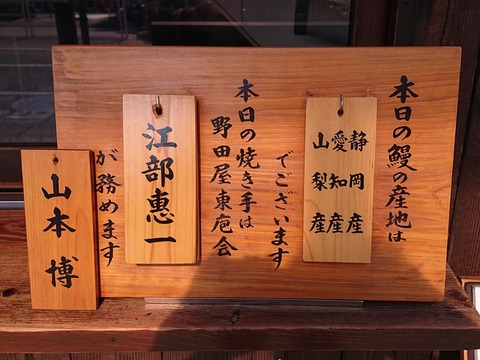 本日の鰻の産地は
静岡産
愛知産
山梨産
でございます
本日の焼き手は
野田屋東庖会
江部恵一
が務めます
山本博